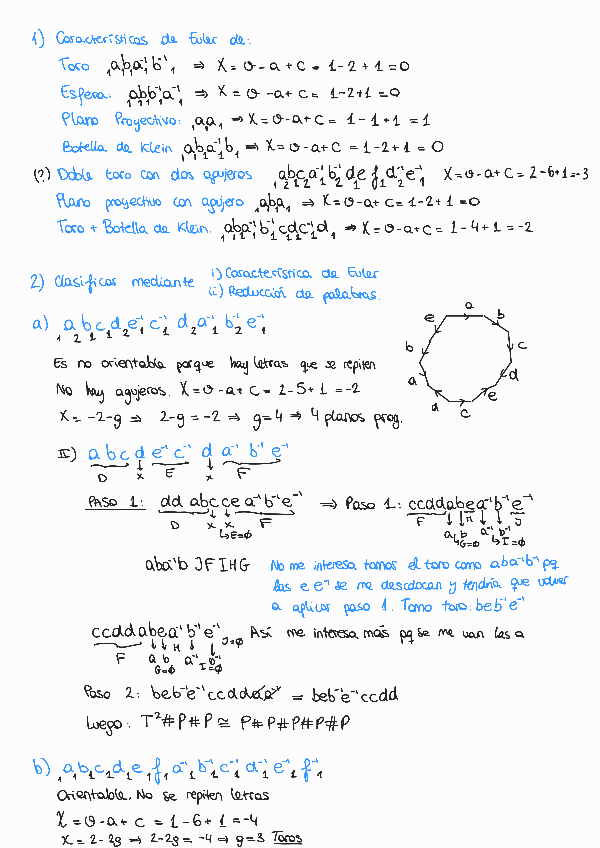 1) Características de Euler de:
Toro ₁a₁b₁a⁻¹₁b⁻¹₁ ⇒ X = v - a + c = 1 - 2 + 1 = 0
Esfera: ₁a₁b₁b⁻¹₁a⁻¹₁ ⇒ X = v - a + c = 1-2+1 = 0
Plano Proyectivo: ₁a₁a₁ ⇒ X = v-a+c = 1-1+1 = 1
Botella de Klein ₁a₁b₁a⁻¹₁b₁ ⇒ X = v-a+c = 1-2+1 = 0
(?) Doble toro con dos agujeros ₁a₂b₁c₂a⁻¹₂b⁻¹₂d₁e f₁d⁻¹₂e⁻¹₁ X = v-a+c = 2-6+1=-3
Plano proyectivo con agujero ₁a₁b₁a₁ ⇒ X = v-a+c = 1-2+1 = 0
Toro + Botella de Klein: ₁a₁b₁a⁻¹₁b⁻¹₁c₁d₁c⁻¹₁d₁ ⇒ X = v-a+c = 1-4+1 = -2
2) Clasificas mediante i) Característica de Euler
ii) Reducción de palabras.
a) ₁a₂b₁c₁d₂e⁻¹₁c⁻¹₁d₂a⁻¹₁b⁻¹₂e⁻¹₁
a
e b
b c
a d
d c e
Es no orientable porque hay letras que se repiten
No hay agujeros. X = v-a+c = 2-5+1 = -2
X = -2-g ⇒ 2-g = -2 ⇒ g=4 ⇒ 4 planos proy.
II) a b c d e⁻¹ c⁻¹ d a⁻¹ b⁻¹ e⁻¹
D x E x F
PASO 1: dd abc ce a⁻¹b⁻¹e⁻¹ ⇒ Paso 1: ccddabea⁻¹b⁻¹e⁻¹
D x x F
↳E=∅
F a b H a⁻¹ b⁻¹ J
G=∅ ↳I=∅
aba⁻¹b JFIHG
No me interesa tomas el toro como aba⁻¹b⁻¹ pq
las e e⁻¹ se me descolocan y tendría que volver
a aplicar paso 1. Tomo toro: beb⁻¹e⁻¹
ccddabea⁻¹b⁻¹e⁻¹ Así me interesa más pq se me van las a
F a b H a⁻¹ b⁻¹ J=∅
G=∅ I=∅
Paso 2: beb⁻¹e⁻¹ccddaa⁻¹ = beb⁻¹e⁻¹ccdd
Luego: T²#P#P ≅ P#P#P#P#P
b) ₁a₁b₁c₁d₁e₁f₁a⁻¹₁b⁻¹₁c⁻¹₁d⁻¹₁e⁻¹₁f⁻¹₁
Orientable. No se repiten letras
X = v-a+c = 1-6+1 = -4
X = 2-2g ⇒ 2-2g = -4 ⇒ g=3 Toros